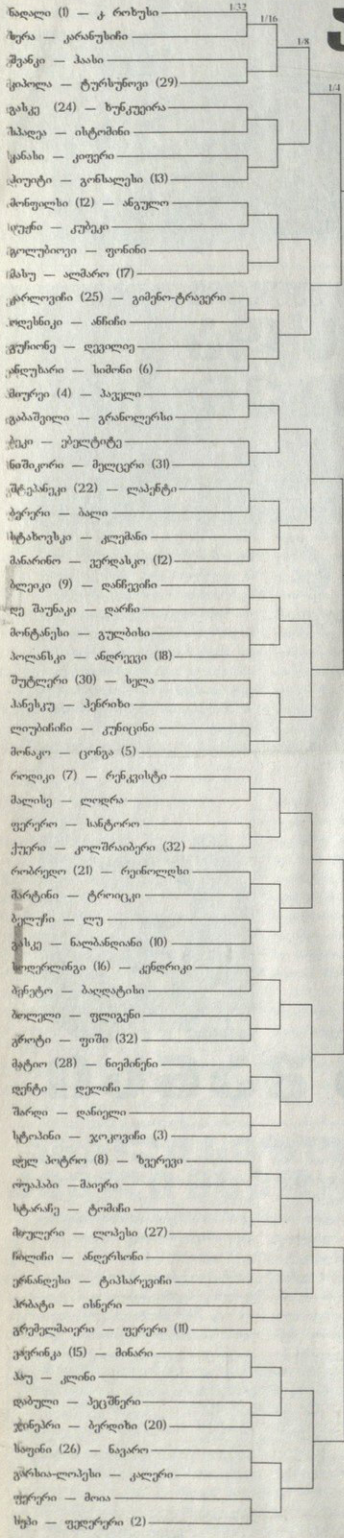 1/32
1/16
1/8
1/4
ნადალი (1) — კ. როხუსი
სერა — კარანუსიჩი
შვანკი — ჰაასი
კიპოლა — ტურსუნოვი (29)
გასკე (24) — ხუნკუეირა
სპადეა — ისტომინი
კანასი — კიფერი
ჰიუიტი — გონსალესი (13)
მონფილსი (12) — ანგულო
— კუბეკი
გოლუბიოვი — ფონინი
მასუ — ალმარო (17)
კარლოვიჩი (25) — გიმენო-ტრავერი
ოდესნიკი — ანჩიჩი
გუჩიონე — დევილიე
ანდუხარი — სიმონი (6)
მიურეი (4) — პაველი
გაბაშვილი — გრანოლერსი
ბეკი — ებელტიტე
ნიშიკორი — მელცერი (31)
შტეპანეკი (22) — ლაპენტი
ბერერი — ბალი
სტახოვსკი — კლემანი
მანარინო — ვერდასკო (12)
ბლეიკი (9) — დანჩევიჩი
დე შაუნაკი — დარჩი
მონტანესი — გულბისი
პოლანსკი — ანდრეევი (18)
შუტლერი (30) — სელა
ჰანესკუ — ჰენრიხი
ლიუბიჩიჩი — კუნიცინი
მონაკო — ცონგა (5)
როდიკი (7) — რენკვისტი
მალისე — ლოდრა
ფერერო — სანტორო
ქუერი — კოლშრაიბერი (32)
რობრედო (21) — რეინოლდსი
მარტინი — ტროიცკი
ბელუჩი — ლუ
გასკე — ნალბანდიანი (10)
სოდერლინგი (16) — კენდრიკი
ბენეტო — ბაღდატისი
ბოლელი — ფლიგენი
გროტი — ფიში (32)
მატიო (28) — ნიემინენი
დენტი — დელიჩი
შარდი — დანიელი
სტოპინი — ჯოკოვიჩი (3)
დელ პოტრო (8) — ზვერევი
ოუაჰაბი — მაიერი
სტარაჩე — ტომიჩი
მიულერი — ლოპესი (27)
ჩილიჩი — ანდერსონი
ერნანდესი — ტიპსარევიჩი
პრბატი — ისნერი
გრემელმაიერი — ფერერი (11)
ვავრინკა (15) — მინარი
პაუ — კლინი
დაბული — პეცშნერი
ჯინეპრი — ბერდიხი (20)
საფინი (26) — ნავარო
გარსია-ლოპესი — კალერი
ფერერი — მოია
სეპი — ფედერერი (2)